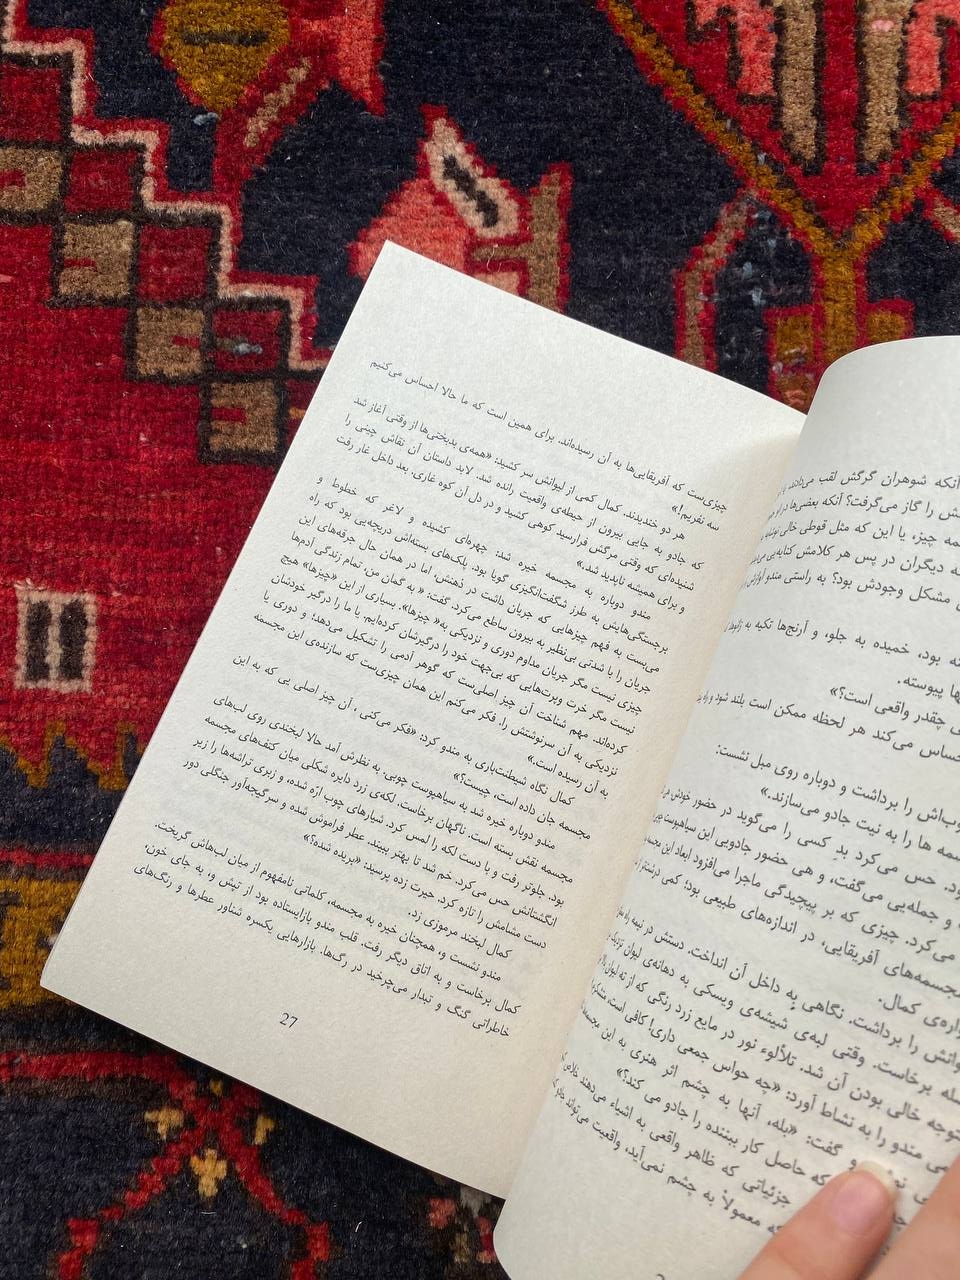 آنکه شوهران گرگش لقب می‌دادند
را گاز می‌گرفت؟ آنکه بعضی‌ها در او
چیز، یا این که مثل قوطی خالی
دیگران در پس هر کلامش
مشکل وجودش بود؟ به راستی مندو
بود، خمیده به جلو، و آرنج‌ها تکیه به
پیوسته.
چقدر واقعی است؟»
می‌کند هر لحظه ممکن است بلند شود و
را برداشت و دوباره روی مبل نشست:
ها را به نیت جادو می‌سازند.»
حس می‌کرد بدِ کسی را می‌گوید در حضور خودش
و جمله‌یی می‌گفت، و هی حضور جادویی این سیاهپوست
می‌کرد. چیزی که بر پیچیدگی ماجرا می‌افزود ابعاد این
مجسمه‌های آفریقایی، در اندازه‌های طبیعی بود؛ کمی درشتتر
کمال.
را برداشت. نگاهی به داخل آن انداخت. دستش در نیمه راه
برخاست. وقتی لبه‌ی شیشه‌ی ویسکی به دهانه‌ی لیوان
متوجه خالی بودن آن شد. تلألوء نور در مایع زرد رنگی که از ته لیوان
مندو را به نشاط آورد: «چه حواس جمعی داری! کافی است، متشکرم
و گفت: «بله، آنها به چشم اثر هنری به این
که حاصل کار بیننده را جادو می کند؟»
جزئیاتی که ظاهر واقعی به اشیاء می‌دهند
که معمولاً به چشم نمی‌آید، واقعیت می‌تواند
چیزی‌ست که آفریقایی‌ها به آن رسیده‌اند. برای همین است که ما حالا احساس می‌کنیم
سه نفریم!»
هر دو خندیدند. کمال کمی از لیوانش سر کشید: «همه‌ی بدبختی‌ها از وقتی آغاز شد
که جادو به جایی بیرون از حیطه‌ی واقعیت رانده شد. لابد داستان آن نقاش چینی را
شنیده‌ای که وقتی مرگش فرارسید کوهی کشید و در دل آن کوه غاری. بعد داخل غار رفت
و برای همیشه ناپدید شد.»
مندو دوباره به مجسمه خیره شد: چهره‌ای کشیده و لاغر که خطوط و
برجستگی‌هایش به طرز شگفت‌انگیزی گویا بود. پلک‌های بسته‌اش دریچه‌یی بود که راه
می‌بست به فهم چیزهایی که جریان داشت در ذهنش، اما در همان حال جرقه‌های این
جریان را با شدتی بی‌نظیر به بیرون ساطع می‌کرد. گفت: «به گمان من، تمام زندگی آدم‌ها
چیزی نیست مگر جریان مداوم دوری و نزدیکی به «چیزها». بسیاری از این «چیزها» هیچ
نیست مگر خرت وپرت‌هایی که بی‌جهت خود را درگیرشان کرده‌ایم یا ما را درگیر خودشان
کرده‌اند. مهم شناخت آن چیز اصلی‌ست که گوهر آدمی را تشکیل می‌دهد؛ و دوری یا
نزدیکی به آن سرنوشتش را. فکر می‌کنم این همان چیزی‌ست که سازنده‌ی این مجسمه
به آن رسیده است.»
کمال نگاه شیطنت‌باری به مندو کرد: «فکر می‌کنی، آن چیز اصلی یی که به این
مجسمه جان داده است، چیست؟»
مندو دوباره خیره شد به سیاهپوست چوبی. به نظرش آمد حالا لبخندی روی لب‌های
مجسمه نقش بسته است. ناگهان برخاست. لکه‌ی زرد دایره شکلی میان کتف‌های مجسمه
بود. جلوتر رفت و با دست لکه را لمس کرد. شیارهای چوب اره شده، و زبری تراشه‌ها را زیر
انگشتانش حس می‌کرد. خم شد تا بهتر ببیند. عطر فراموش شده و سرگیجه‌آور جنگلی دور
دست مشامش را تازه کرد. حیرت زده پرسید: «بریده شده؟»
کمال لبخند مرموزی زد.
مندو نشست و، همچنان خیره به مجسمه، کلماتی نامفهوم از میان لب‌هاش گریخت.
کمال برخاست و به اتاق دیگر رفت. قلب مندو بازایستاده بود از تپش و، به جای خون،
خاطراتی گنگ و تبدار می‌چرخید در رگ‌ها. بازارهایی یکسره شناور عطرها و رنگ‌های
27